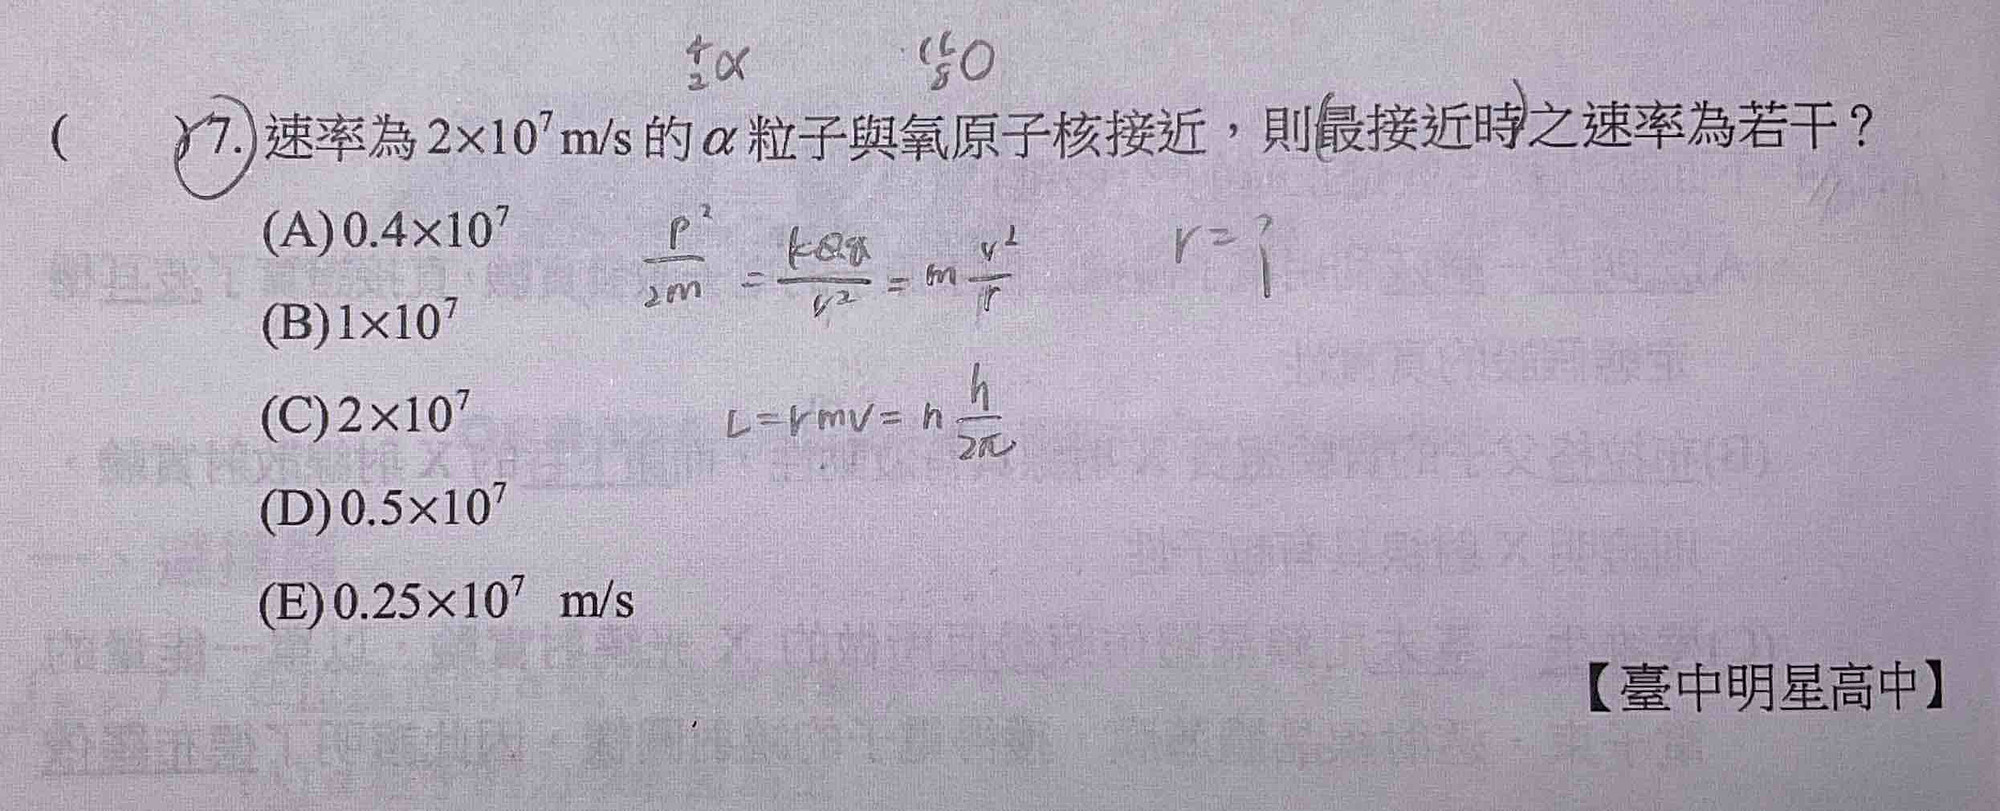 ⁴₂α ¹⁶₈O
( )7. 速率為 2×10⁷ m/s 的 α 粒子與氧原子核接近，則最接近時之速率為若干？
(A) 0.4×10⁷
(B) 1×10⁷
(C) 2×10⁷
(D) 0.5×10⁷
(E) 0.25×10⁷ m/s
p²/2m = kQq/r² = m v²/r r=?
L=rmv=n h/2π
【臺中明星高中】